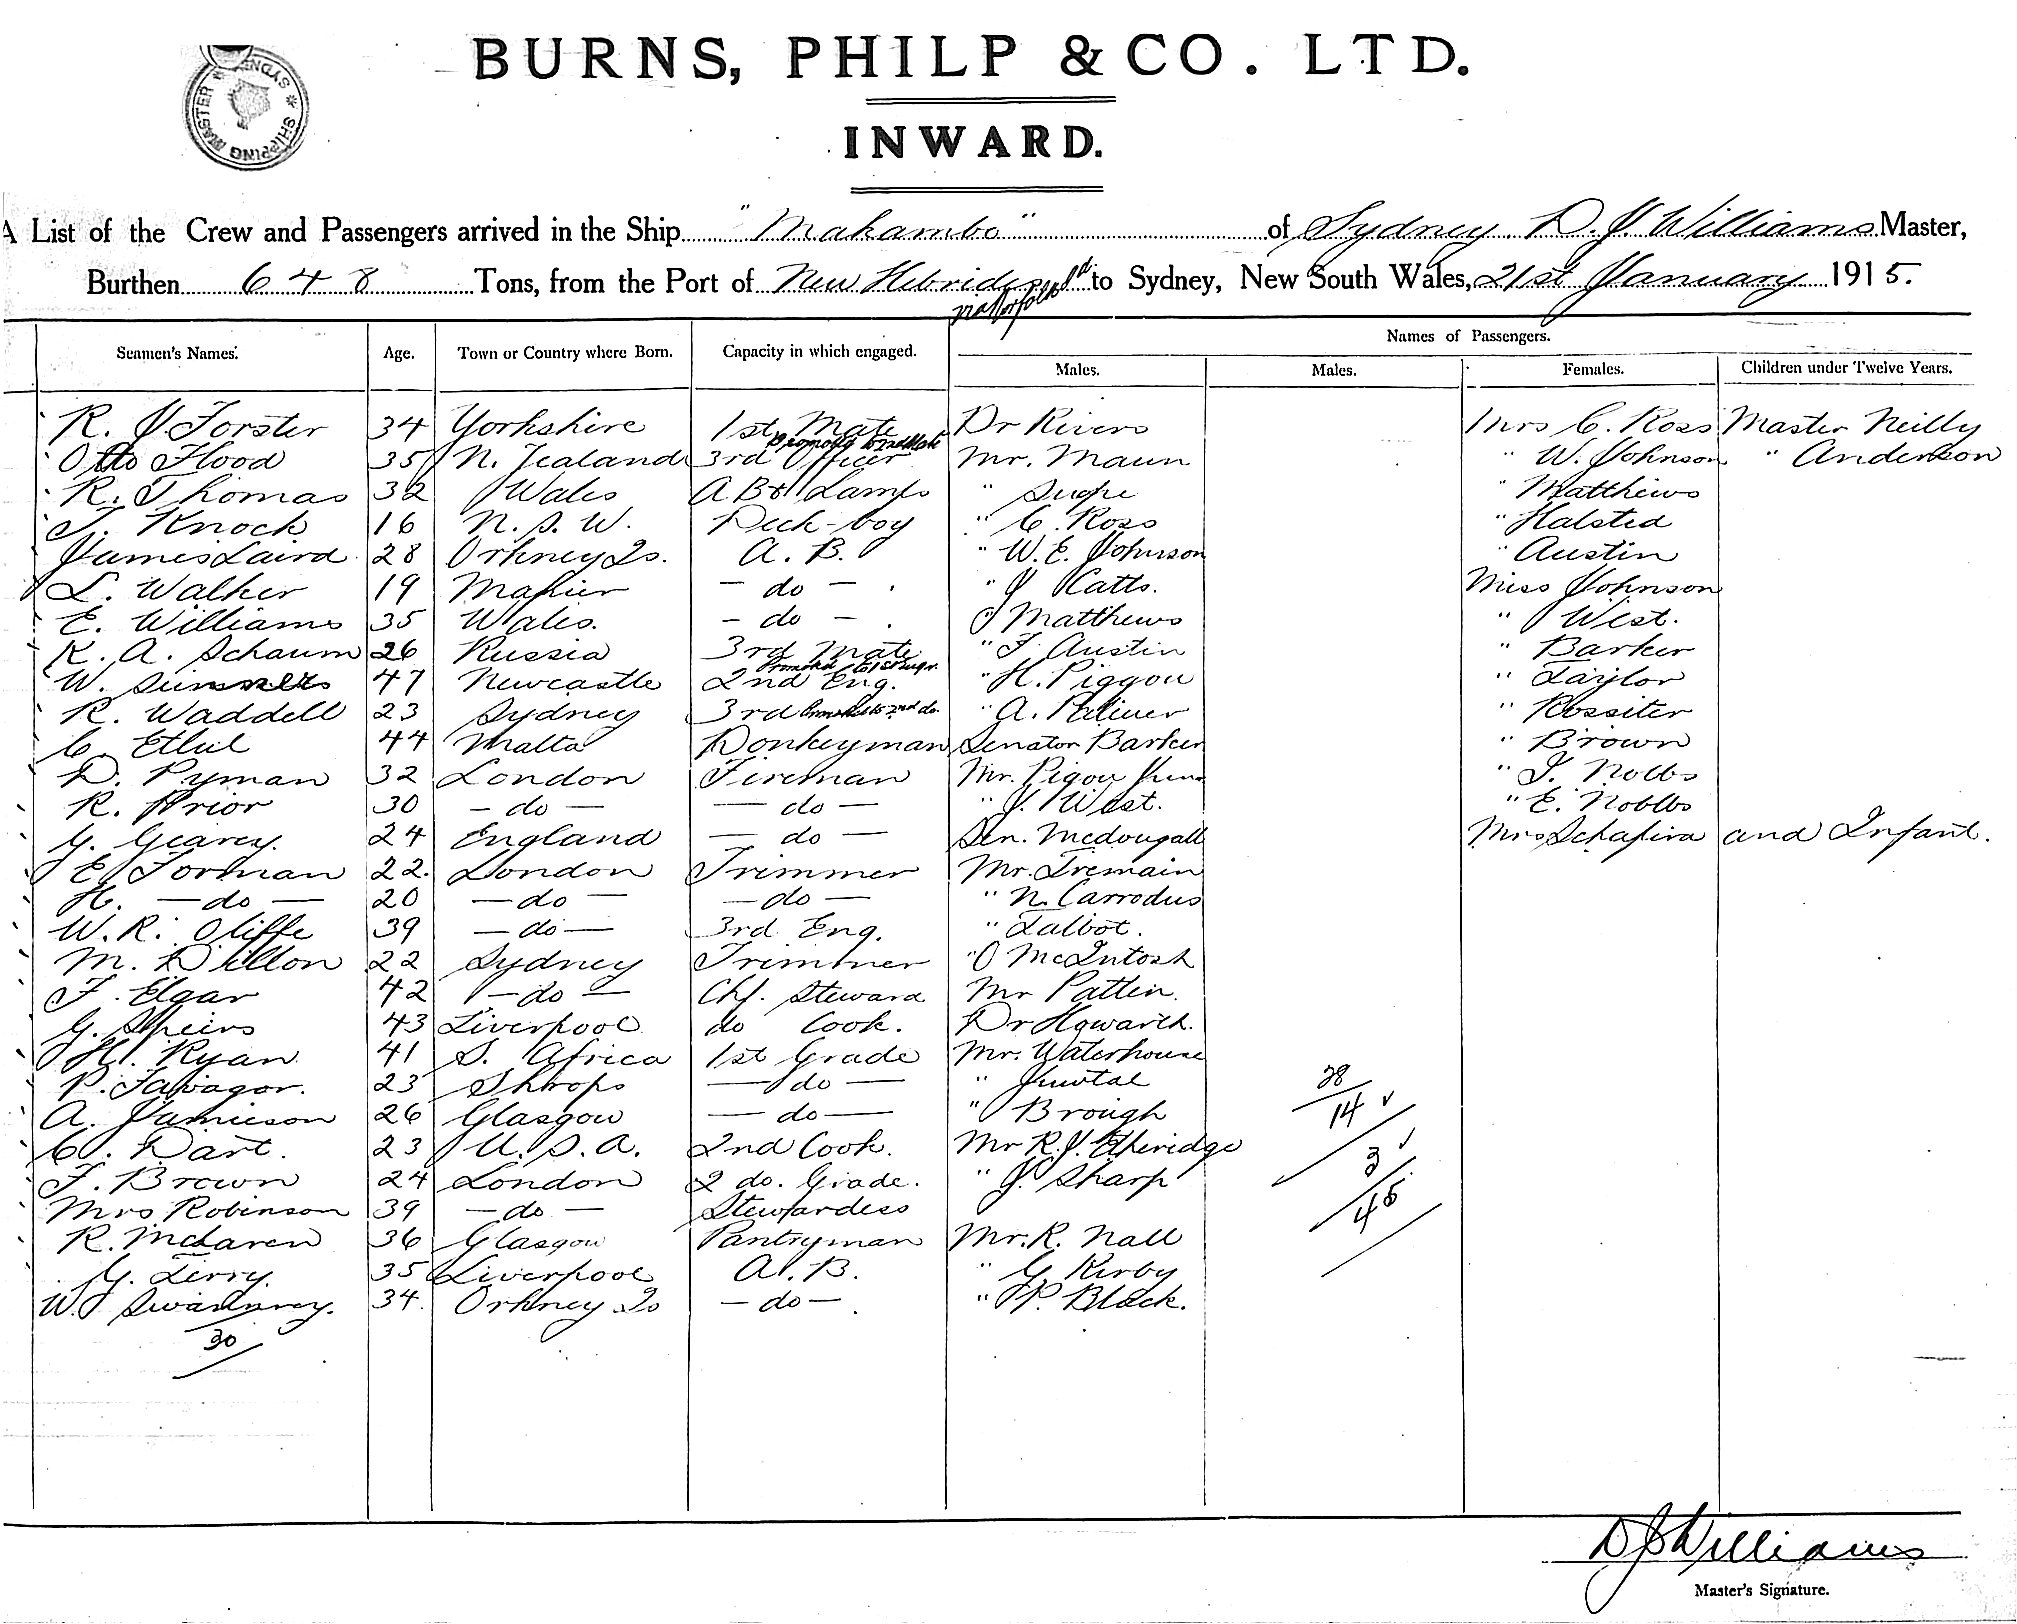 BURNS, PHILP & CO. LTD.
INWARD.
SHIPPING MASTER * SYDNEY *
A List of the Crew and Passengers arrived in the Ship "Makambo" of Sydney D. J. Williams Master,
Burthen 648 Tons, from the Port of New Hebrides to Sydney, New South Wales, 21st January 1915.
via Norfolk Id
Names of Passengers.
Seamen's Names. Age. Town or Country where Born. Capacity in which engaged. Males. Males. Females. Children under Twelve Years.
R. J. Forster 34 Yorkshire 1st Mate Dr Rivers Mrs C. Ross Master Neilly
Promoted to 2nd Mate
Otto Flood 35 N. Zealand 3rd Officer Mr. Maun " W. Johnson " Anderson
R. Thomas 32 Wales A B & Lamps " " Matthews
T. Knock 16 N. S. W. Deck-boy " C. Ross " Halsted
James Laird 28 Orkney Is. A. B. " W. E. Johnson " Austin
L. Walker 19 - do - " J Catts. Miss Johnson
E. Williams 35 Wales. - do - J Matthews " West.
K. A. Schaum 26 Russia 3rd Mate " F Austin " Barker
Promoted to 1st Engr.
W. 47 Newcastle 2nd Eng. " H. Piggou " Taylor
R. Waddell 23 Sydney 3rd Promoted to 2nd do. " A. Palmer " Rossiter
C. 44 Malta Donkeyman Senator Barker " Brown
D. Pyman 32 London Fireman Mr. Pigou Junr " J. Nobbs
R. Prior 30 - do - - do - " J. West. " E. Nobbs
G. Gearey. 24 England - do - Sen. McDougall Mrs Schafira and Infant.
E Forman 22. London Trimmer Mr. Tremain
H. - do - 20 - do - - do - " N. Carrodus
W. R. Oliffe 39 - do - 3rd Eng. " Talbot.
M. Dillon 22 Sydney Trimmer " O McIntosh
F. Elgar 42 - do - Chf. Steward Mr Patten.
G. Speirs 43 Liverpool do Cook. Dr Howarth.
H. Ryan 41 S. Africa 1st Grade Mr. Waterhouse
P. 23 Shrops - do - "
A. Jamieson 26 Glasgow - do - " Brough
C. Dart. 23 U. S. A. 2nd Cook. Mr R. J. Etheridge
F. Brown 24 London 2 do. Grade. " J. Sharp
Mrs Robinson 39 - do - Stewardess
R. McLaren 36 Glasgow Pantryman Mr. R. Nall
G. Terry. 35 Liverpool A. B. " G Kirby
W. 34. Orkney Is - do - " P. Black.
28
14
3
45
30
D J Williams
Master's Signature.